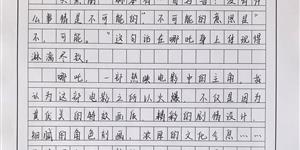 么事情是不可能的"，"不可能的意思是
不，可能。"这句话在哪吒身上体现得
淋漓尽致。
哪吒，一部热映电影中的主角，我
认为这部电影之所以火爆，不仅是因为
其优美的特效画质，精彩的剧情设计，
细腻的角色刻画，浓厚的文化含